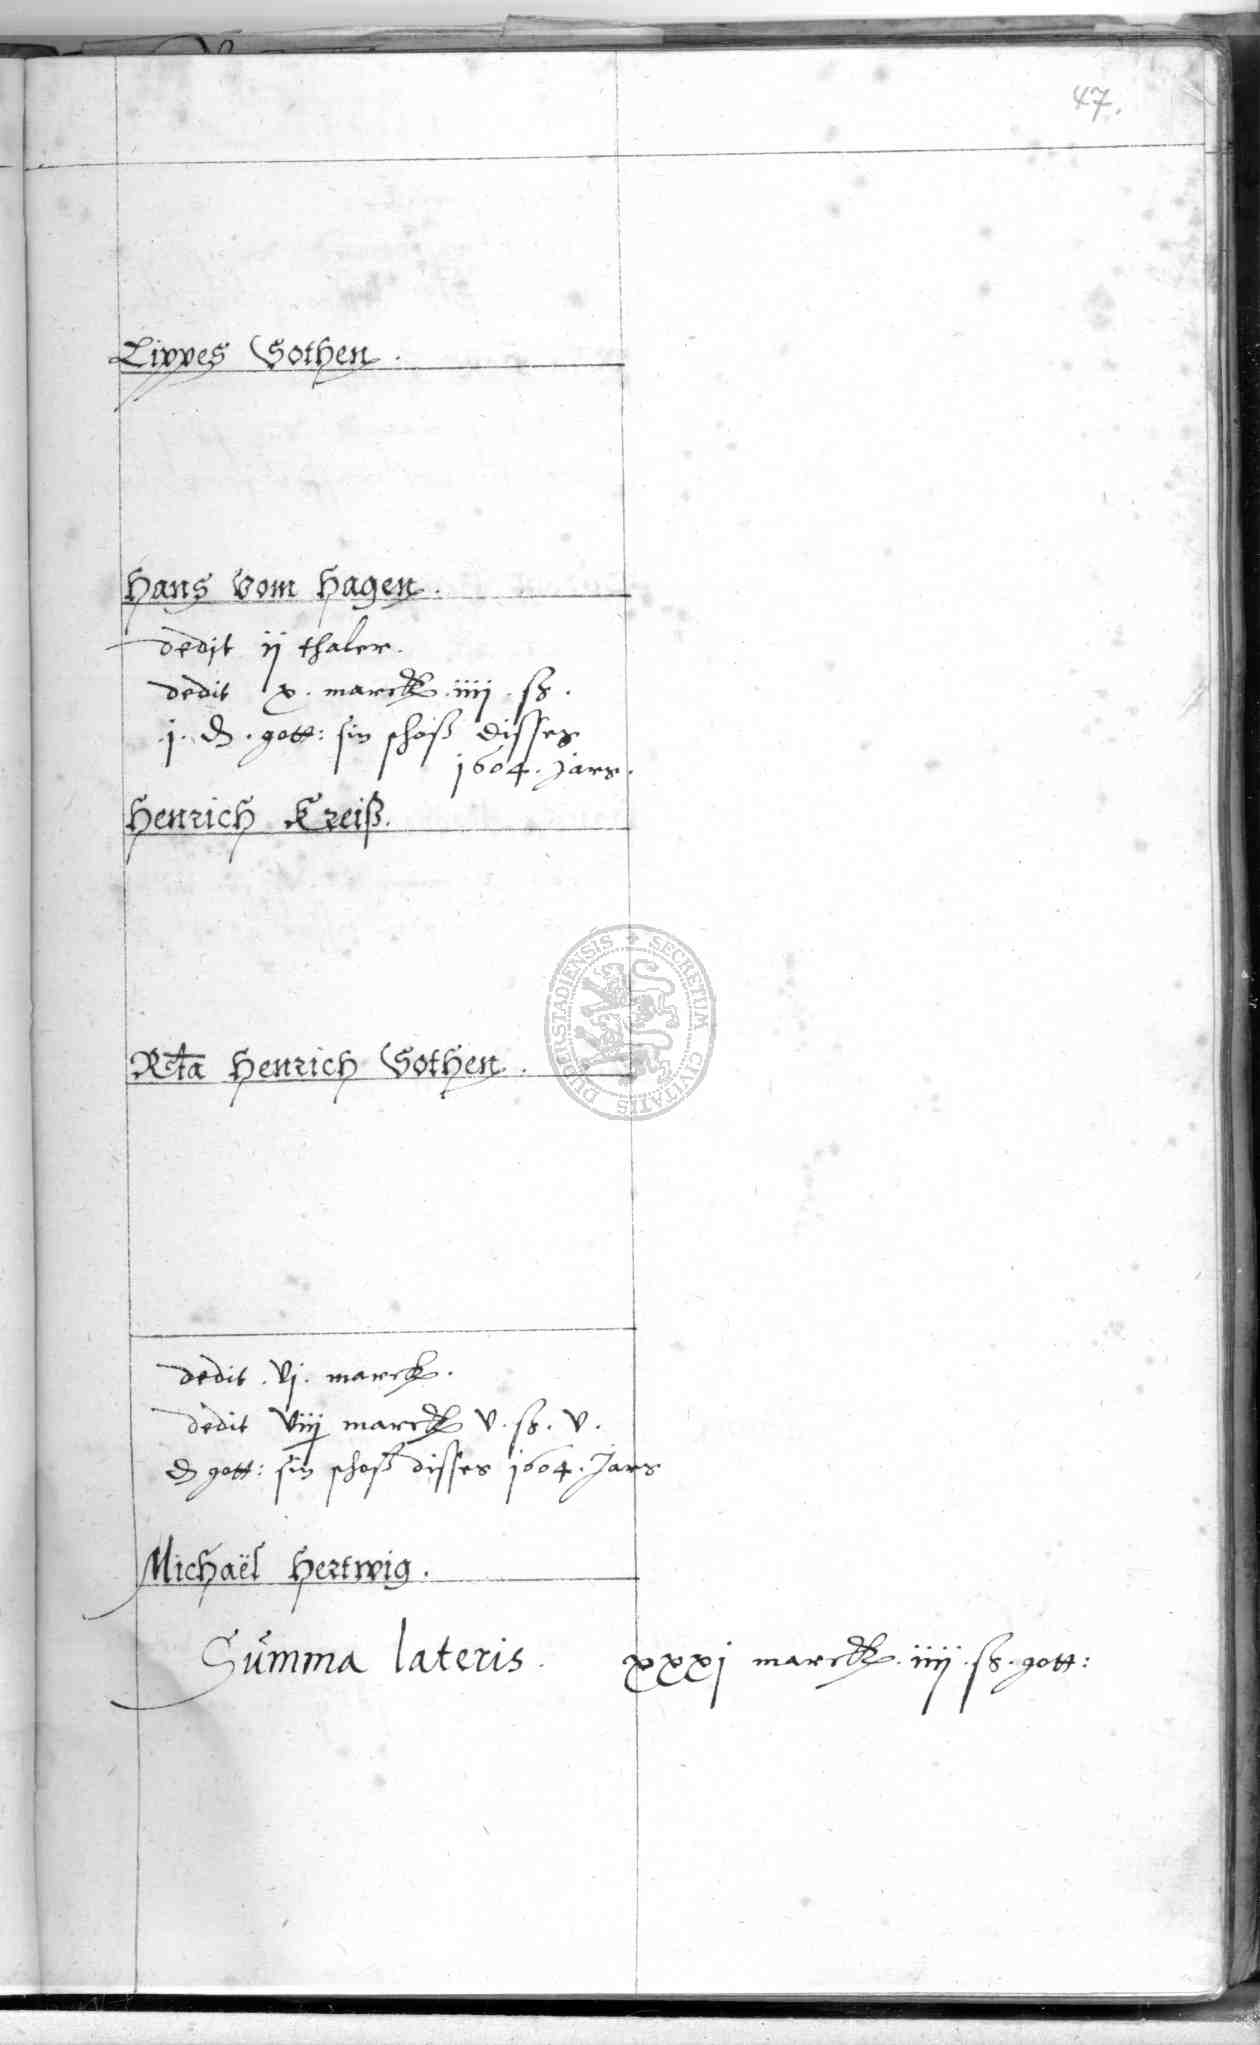 47.
Lippes Gothen.
Hans vom Hagen.
dedit ij thaler.
dedit x. marck. iiij. sß.
j. ₰. gott: sin schoß disses
1604. Jars.
Henrich Kreiß.
Rcta Henrich Gothen.
SECRETUM CIVITATIS DUDERSTADIENSIS
dedit. vj. marck.
dedit viij marck v. sß. v.
₰ gott: sin schoß disses 1604. Jars
Michaël Hertwig.
Summa lateris. xxxj marck. iiij. sß. gott: